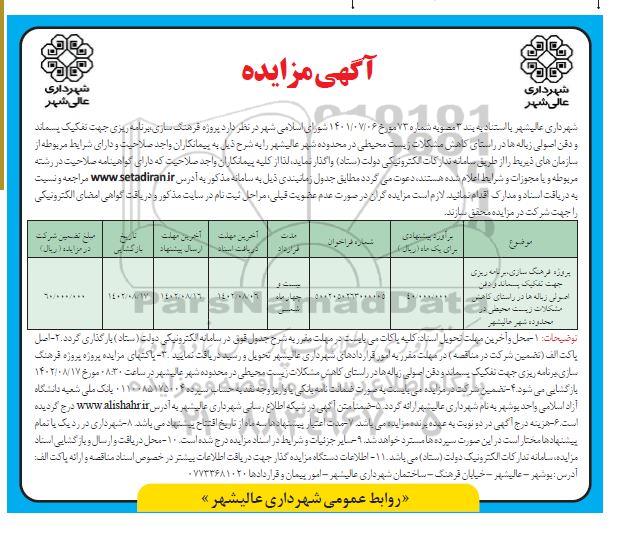 آگهی مزایده
شهرداری
عالی‌شهر
شهرداری
عالی‌شهر
شهرداری عالیشهر بااستناد به بند ۳ مصوبه شماره ۷۳ مورخ ۱۴۰۱/۰۷/۰۶ شورای اسلامی شهر در نظر دارد پروژه فرهنگ سازی،برنامه ریزی جهت تفکیک پسماند
و دفن اصولی زباله ها در راستای کاهش مشکلات زیست محیطی در محدوده شهر عالیشهر را به شرح ذیل به پیمانکاران واجد صلاحیت و دارای شرایط مربوطه از
سازمان های ذیربط را از طریق سامانه تدارکات الکترونیکی دولت (ستاد) واگذار نماید، لذا از کلیه پیمانکاران واجد صلاحیت که دارای گواهینامه صلاحیت در رشته
مربوطه و یا مجوزات و شرایط اعلام شده هستند، دعوت می گردد مطابق جدول زمانبندی ذیل به سامانه مذکور به آدرس www.setadiran.ir مراجعه و نسبت
به دریافت اسناد و مدارک اقدام نمائید. لازم است مزایده گران در صورت عدم عضویت قبلی، مراحل ثبت نام در سایت مذکور و دریافت گواهی امضای الکترونیکی
را جهت شرکت در مزایده محقق سازند.
موضوع
برآورد پیشنهادی برای یک ماه (ریال)
شماره فراخوان
مدت قرارداد
آخرین مهلت دریافت اسناد
آخرین مهلت ارسال پیشنهاد
تاریخ بازگشایی
مبلغ تضمین شرکت در مزایده (ریال)
پروژه فرهنگ سازی،برنامه ریزی
جهت تفکیک پسماند و دفن
اصولی زباله ها در راستای کاهش
مشکلات زیست محیطی در
محدوده شهر عالیشهر
۴۰/۰۰۰/۰۰۰
۵۰۰۲۰۵۰۲۶۳۰۰۰۰۰۵
بیست و چهار ماه شمسی
۱۴۰۲/۰۸/۰۶
۱۴۰۲/۰۸/۱۶
۱۴۰۲/۰۸/۱۷
۶۰/۰۰۰/۰۰۰
توضیحات: ۱-محل و آخرین مهلت تحویل اسناد: کلیه پاکات می بایست در مهلت مقرر به شرح جدول فوق در سامانه الکترونیکی دولت (ستاد) بارگذاری گردد. ۲-اصل
پاکت الف (تضمین شرکت در مناقصه) در مهلت مقرر به امور قراردادهای شهرداری عالیشهر تحویل و رسید دریافت نمایید. ۳-پاکتهای مزایده پروژه پروژه فرهنگ
سازی،برنامه ریزی جهت تفکیک پسماند و دفن اصولی زباله ها در راستای کاهش مشکلات زیست محیطی در محدوده شهر عالیشهر در ساعت ۰۸:۳۰ مورخ ۱۴۰۲/۰۸/۱۷
بازگشایی می شود. ۴-تضمین شرکت در مزایده می بایست به صورت ضمانت نامه بانکی یا واریز وجه نقد به حساب سپرده ۰۱۱۰۰۸۵۱۷۵۰۰۴ بانک ملی شعبه دانشگاه
آزاد اسلامی واحد بوشهر به نام شهرداری عالیشهر ارائه گردد. ۵-ضمنا متن آگهی در شبکه اطلاع رسانی شهرداری عالیشهر به آدرس www.alishahr.ir درج گردیده
است. ۶-هزینه درج آگهی در دو نوبت به عهده برنده مزایده می باشد. ۷-مدت اعتبار پیشنهادها سه ماه از تاریخ افتتاح پیشنهاد می باشد. ۸-شهرداری در رد یک یا تمام
پیشنهادها مختار است در این صورت سپرده ها مسترد خواهد شد. ۹-سایر جزئیات و شرایط در اسناد مزایده درج شده است. ۱۰-محل دریافت و ارسال و بازگشایی اسناد
مزایده، سامانه تدارکات الکترونیک دولت (ستاد) می باشد. ۱۱- اطلاعات دستگاه مزایده گذار جهت دریافت اطلاعات بیشتر در خصوص اسناد مناقصه و ارائه پاکت الف:
آدرس: بوشهر – عالیشهر – خیابان فرهنگ – ساختمان شهرداری عالیشهر – امور پیمان و قراردادها ۰۷۷۳۳۶۸۱۰۲۰
«روابط عمومی شهرداری عالیشهر»
ParsNamadData